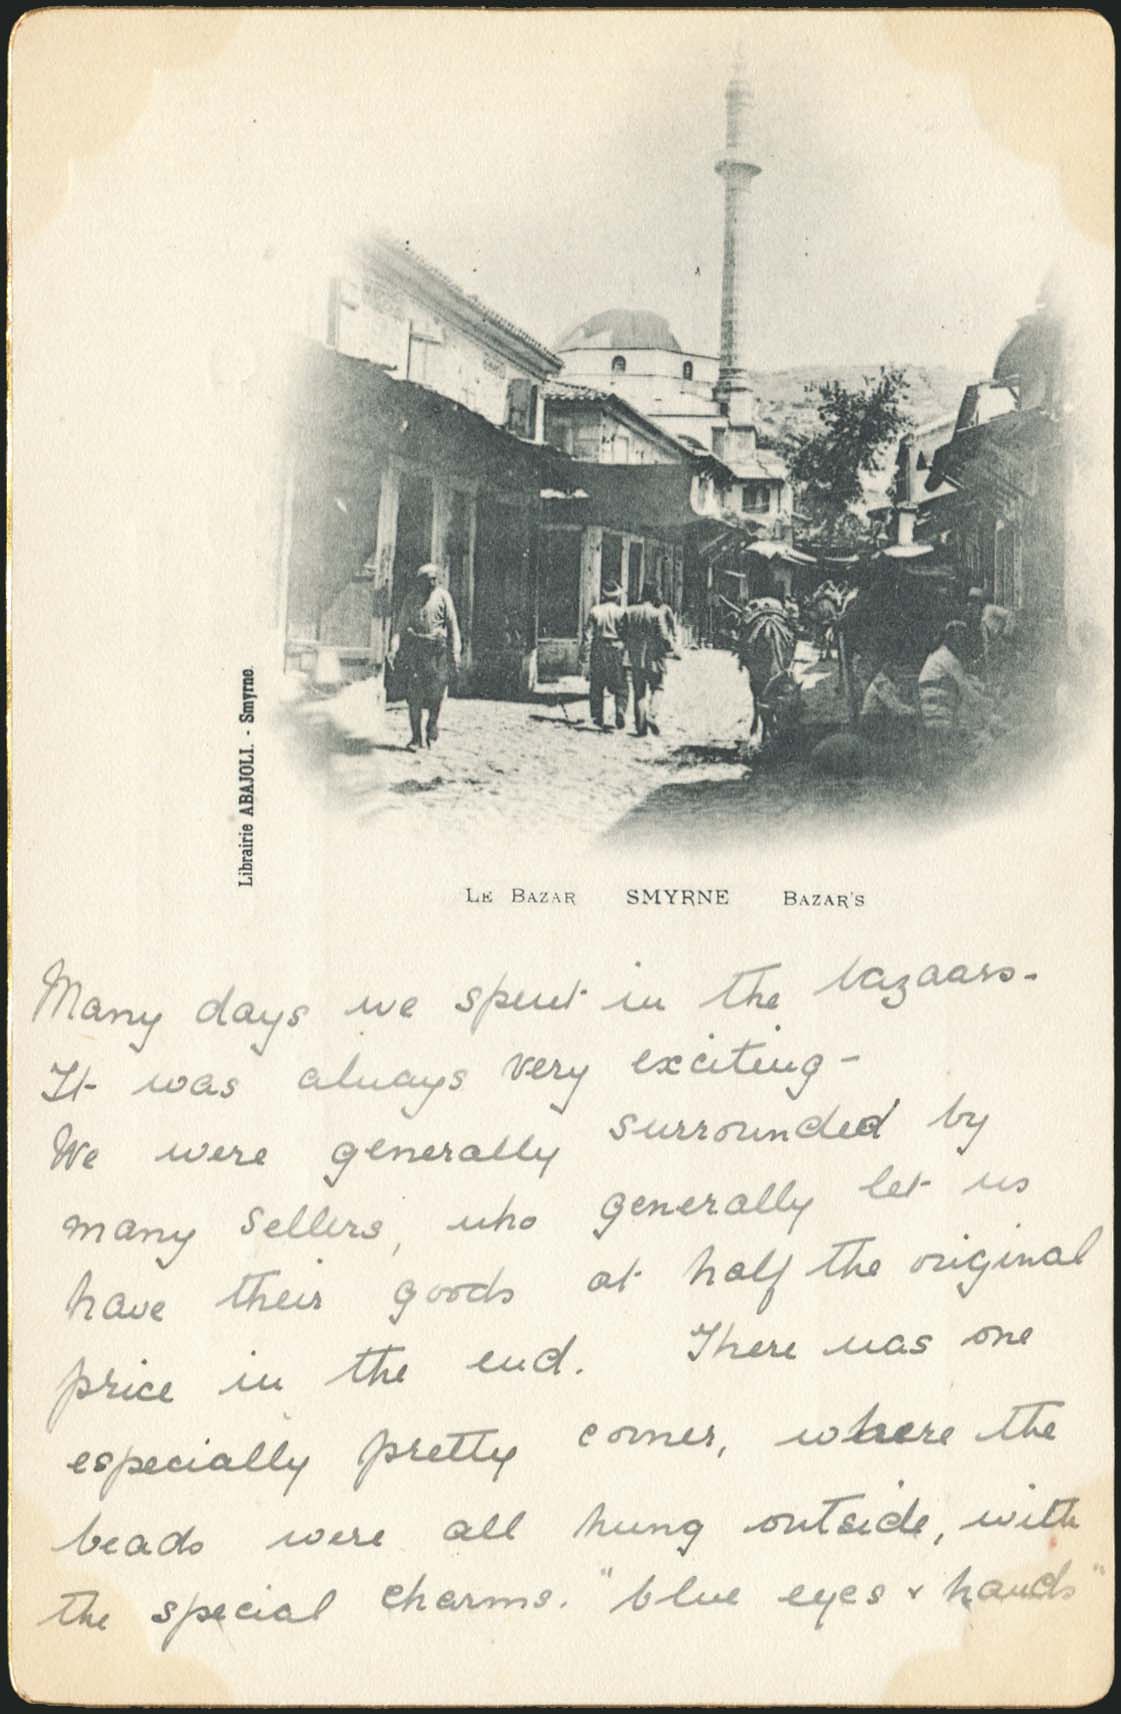 Librairie ABAJOLI. - Smyrne.
LE BAZAR SMYRNE BAZAR'S
Many days we spent in the bazaars-
It was always very exciting-
We were generally surrounded by
many sellers, who generally let us
have their goods at half the original
price in the end. There was one
especially pretty corner, where the
beads were all hung outside, with
the special charms. "blue eyes & hands"